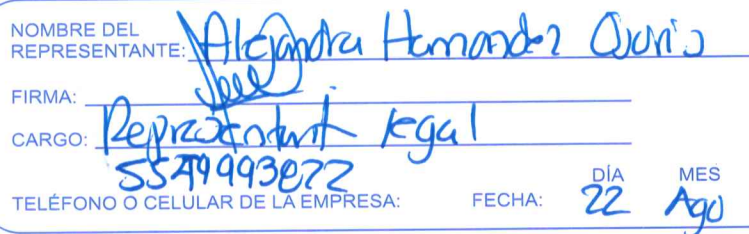 NOMBRE DEL
REPRESENTANTE: Alejandra Hernandez
FIRMA:
CARGO: Representante legal
TELÉFONO O CELULAR DE LA EMPRESA: FECHA: DÍA 22 MES Ago